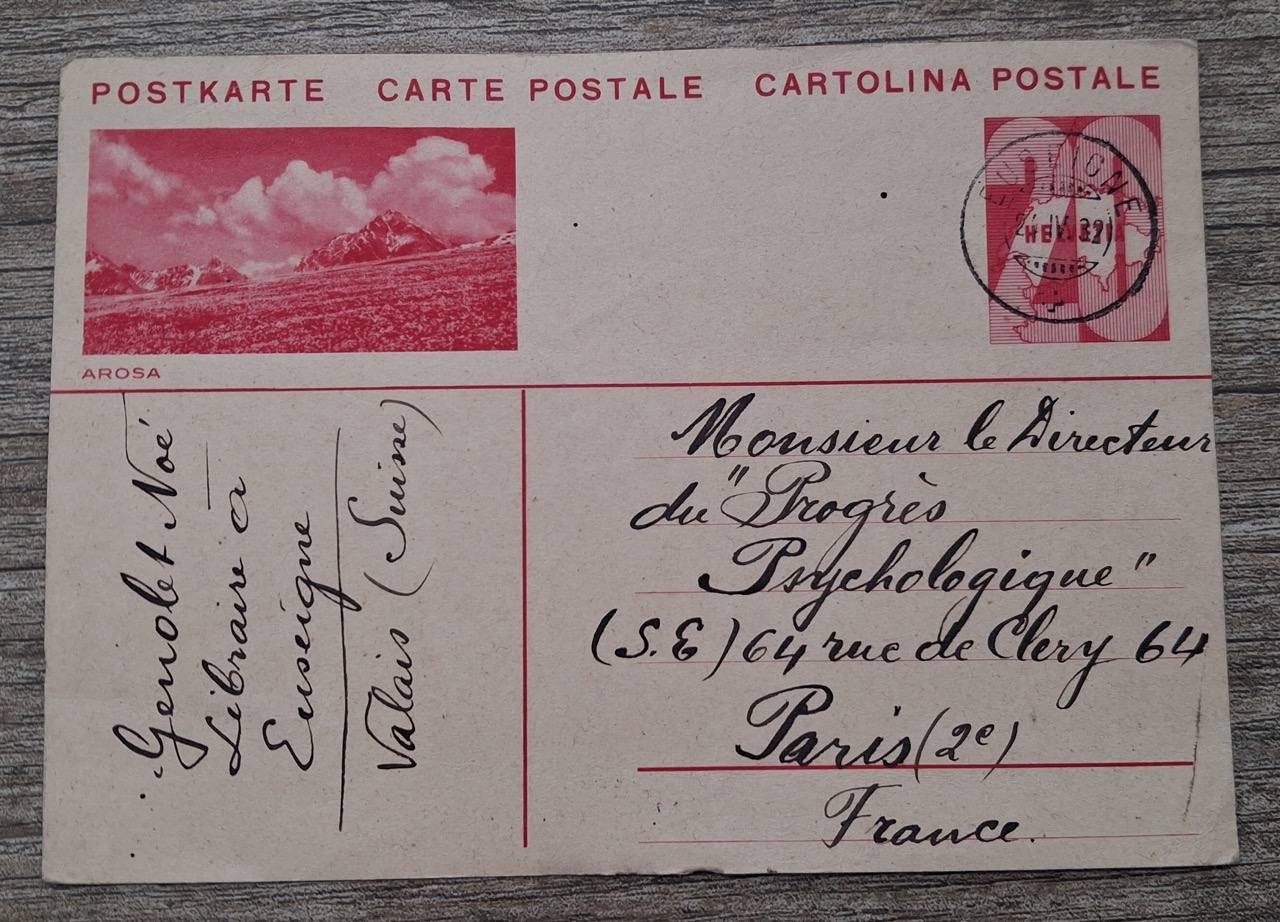 POSTKARTE CARTE POSTALE CARTOLINA POSTALE
AROSA
20
Genolet Noé
Libraire à
Enseigne
Valais (Suisse)
Monsieur le Directeur
du "Progrès
Psychologique"
(S.E) 64 rue de Clery 64
Paris (2e)
France.